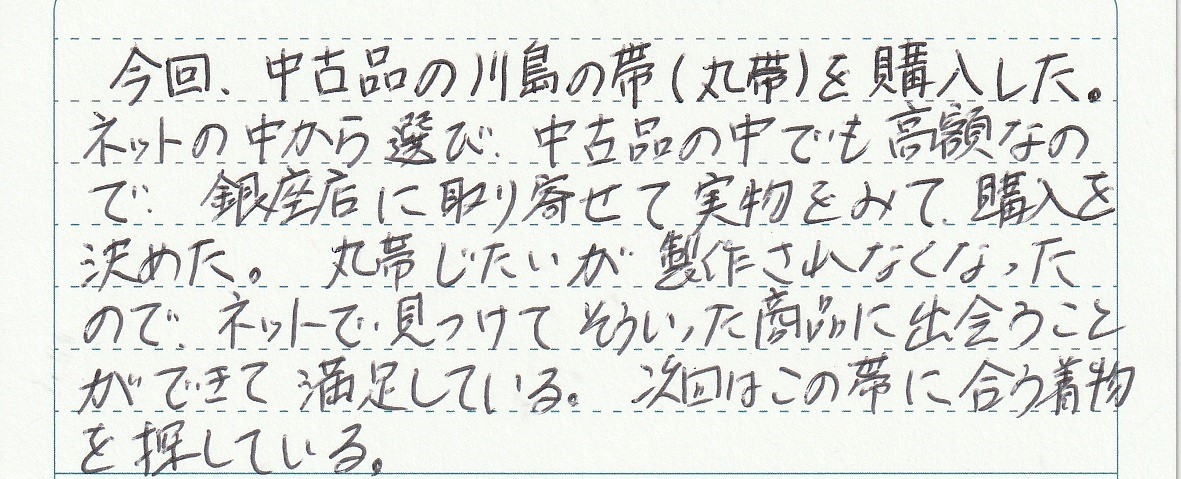 今回、中古品の川島の帯(丸帯)を購入した。
ネットの中から選び、中古品の中でも高額なの
で、銀座店に取り寄せて実物をみて、購入を
決めた。丸帯じたいが製作されなくなった
ので、ネットで見つけてそういった商品に出会うこと
ができて満足している。次回はこの帯に合う着物
を探している。